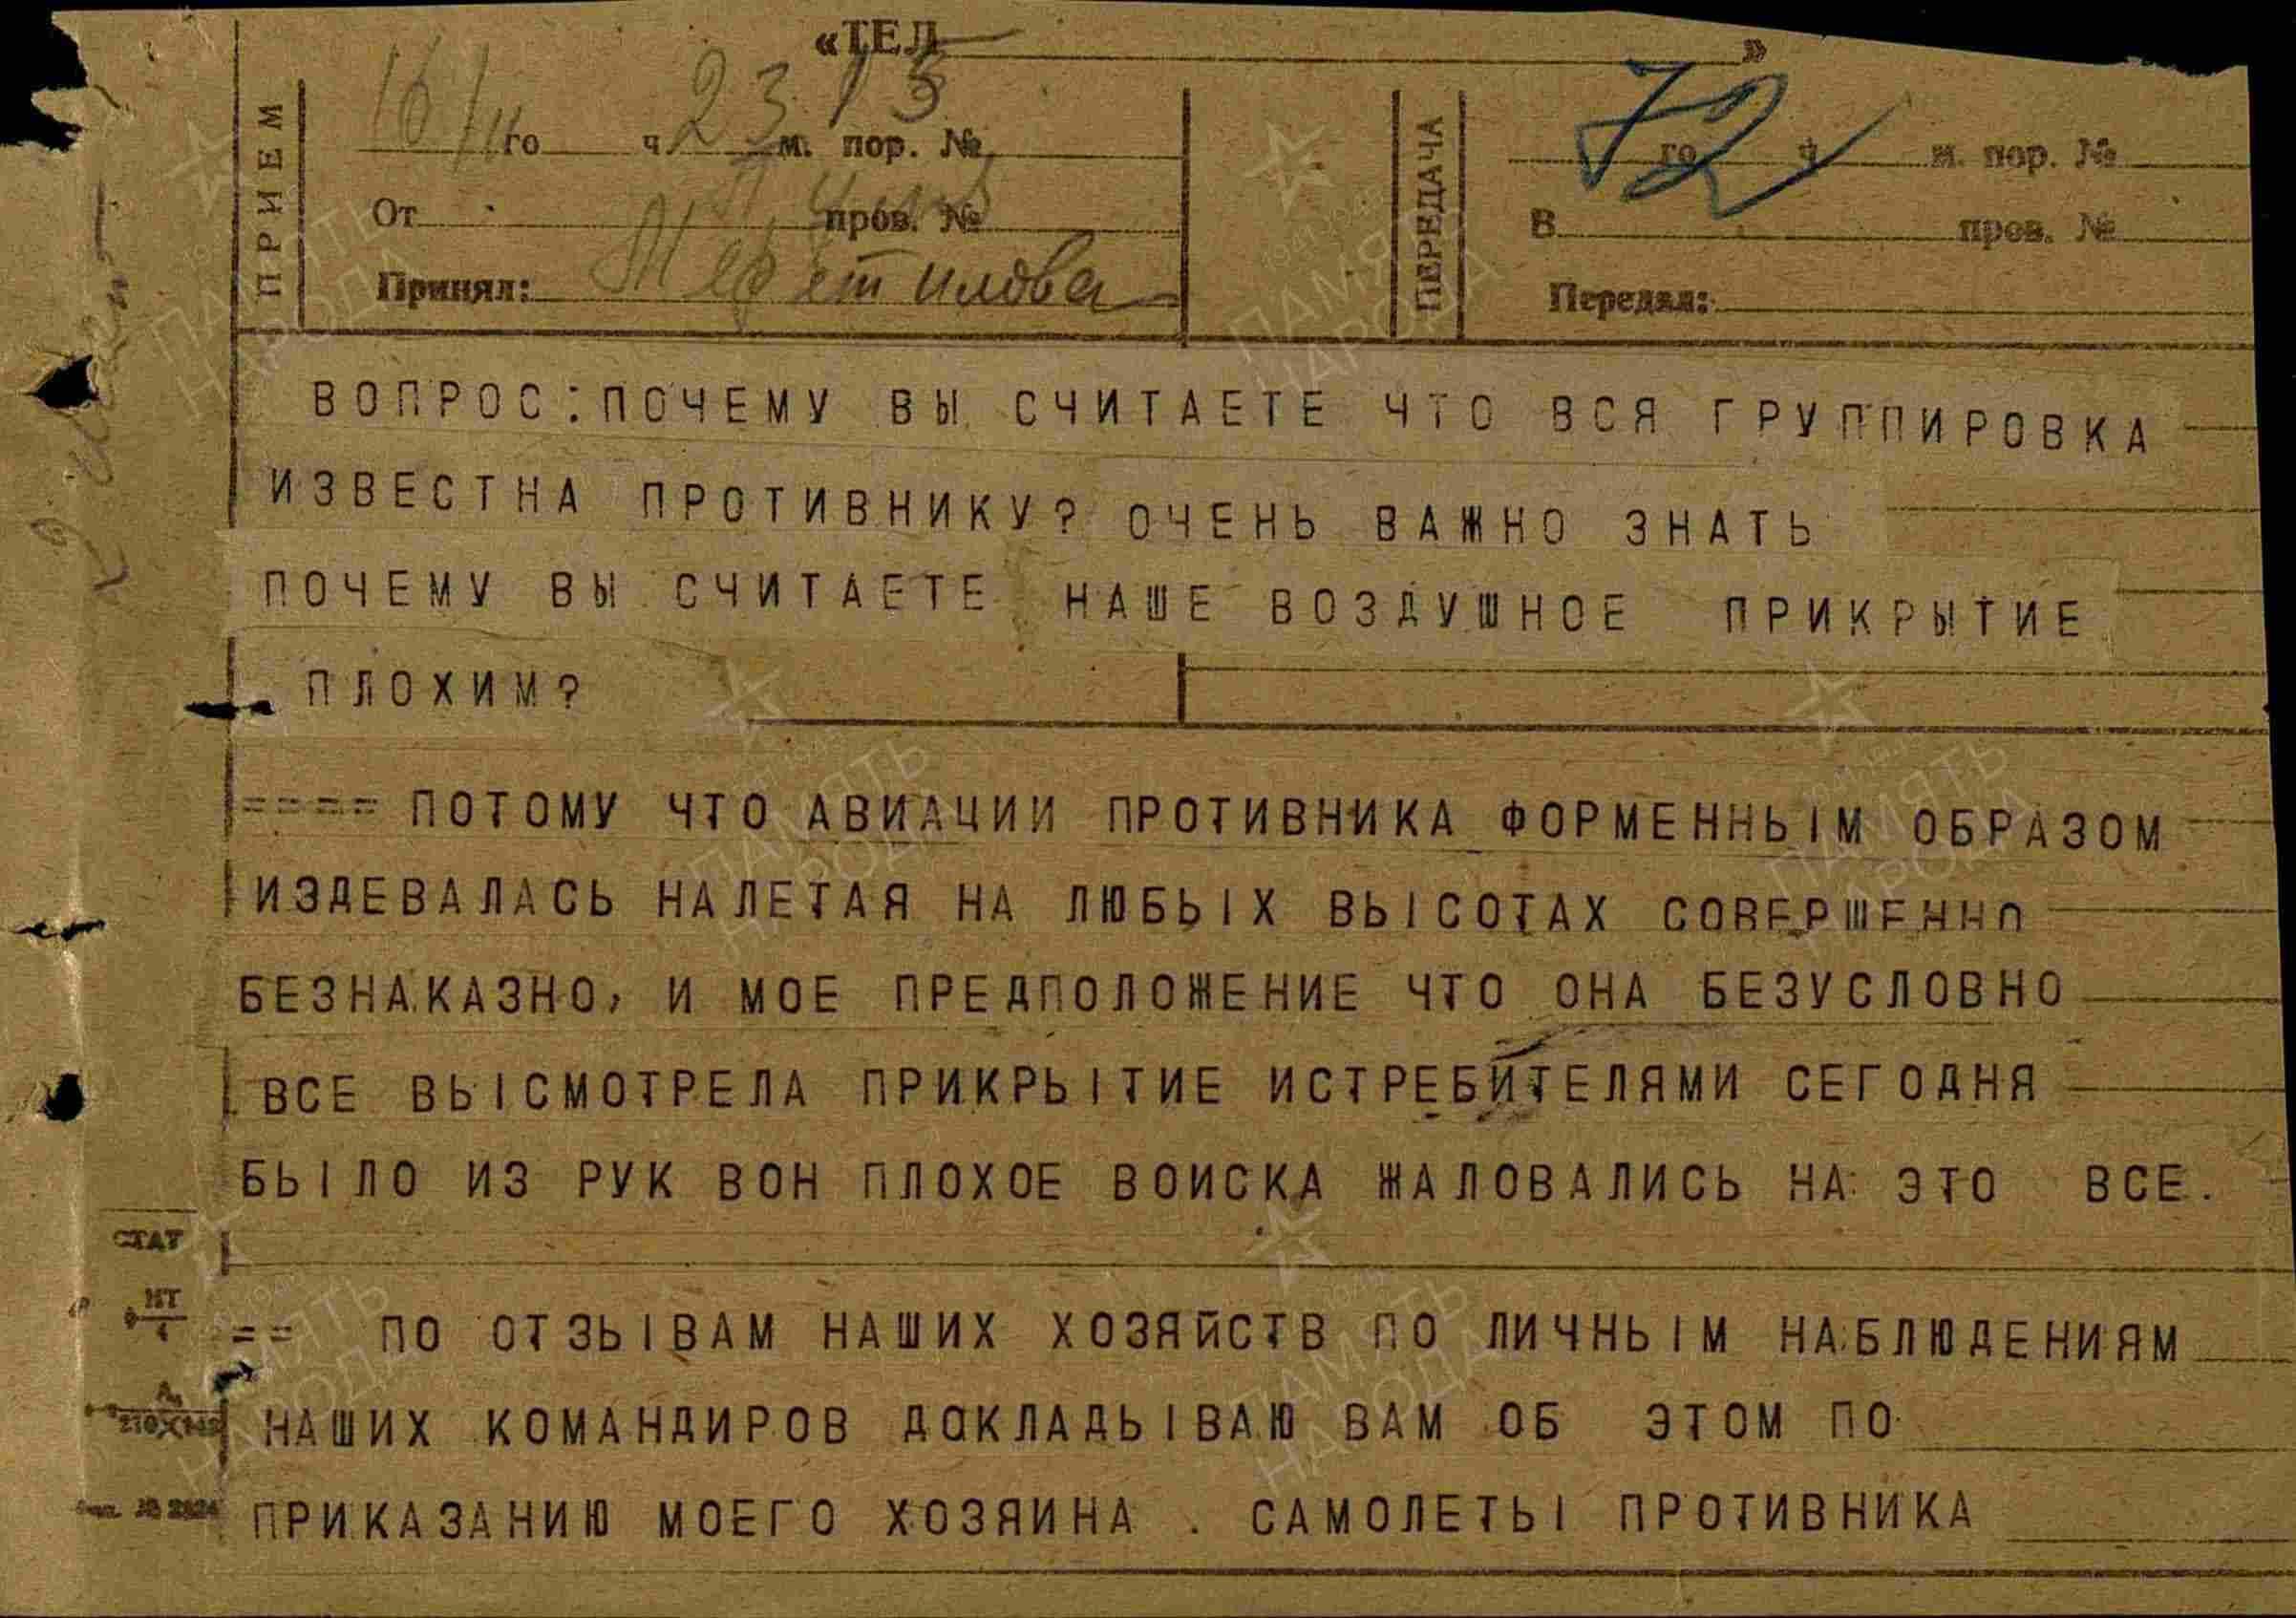 «ТЕЛ »
ПРИЕМ
16/II го ч 23 м. 15 пор. №
От пров. №
Принял:
ПЕРЕДАЧА
72
го ч м. пор. №
В пров. №
Передал:
ВОПРОС:ПОЧЕМУ ВЫ СЧИТАЕТЕ ЧТО ВСЯ ГРУППИРОВКА
ИЗВЕСТНА ПРОТИВНИКУ? ОЧЕНЬ ВАЖНО ЗНАТЬ
ПОЧЕМУ ВЫ СЧИТАЕТЕ НАШЕ ВОЗДУШНОЕ ПРИКРЫТИЕ
ПЛОХИМ?
==== ПОТОМУ ЧТО АВИАЦИИ ПРОТИВНИКА ФОРМЕННЫМ ОБРАЗОМ
ИЗДЕВАЛАСЬ НАЛЕТАЯ НА ЛЮБЫХ ВЫСОТАХ СОВЕРШЕННО
БЕЗНАКАЗНО, И МОЕ ПРЕДПОЛОЖЕНИЕ ЧТО ОНА БЕЗУСЛОВНО
ВСЕ ВЫСМОТРЕЛА ПРИКРЫТИЕ ИСТРЕБИТЕЛЯМИ СЕГОДНЯ
БЫЛО ИЗ РУК ВОН ПЛОХОЕ ВОИСКА ЖАЛОВАЛИСЬ НА ЭТО ВСЕ.
== ПО ОТЗЫВАМ НАШИХ ХОЗЯЙСТВ ПО ЛИЧНЫМ НАБЛЮДЕНИЯМ
НАШИХ КОМАНДИРОВ ДОКЛАДЫВАЮ ВАМ ОБ ЭТОМ ПО
ПРИКАЗАНИЮ МОЕГО ХОЗЯИНА . САМОЛЕТЫ ПРОТИВНИКА
СТАТ
НТ
4
210X148
№ 2824
ПАМЯТЬ
НАРОДА